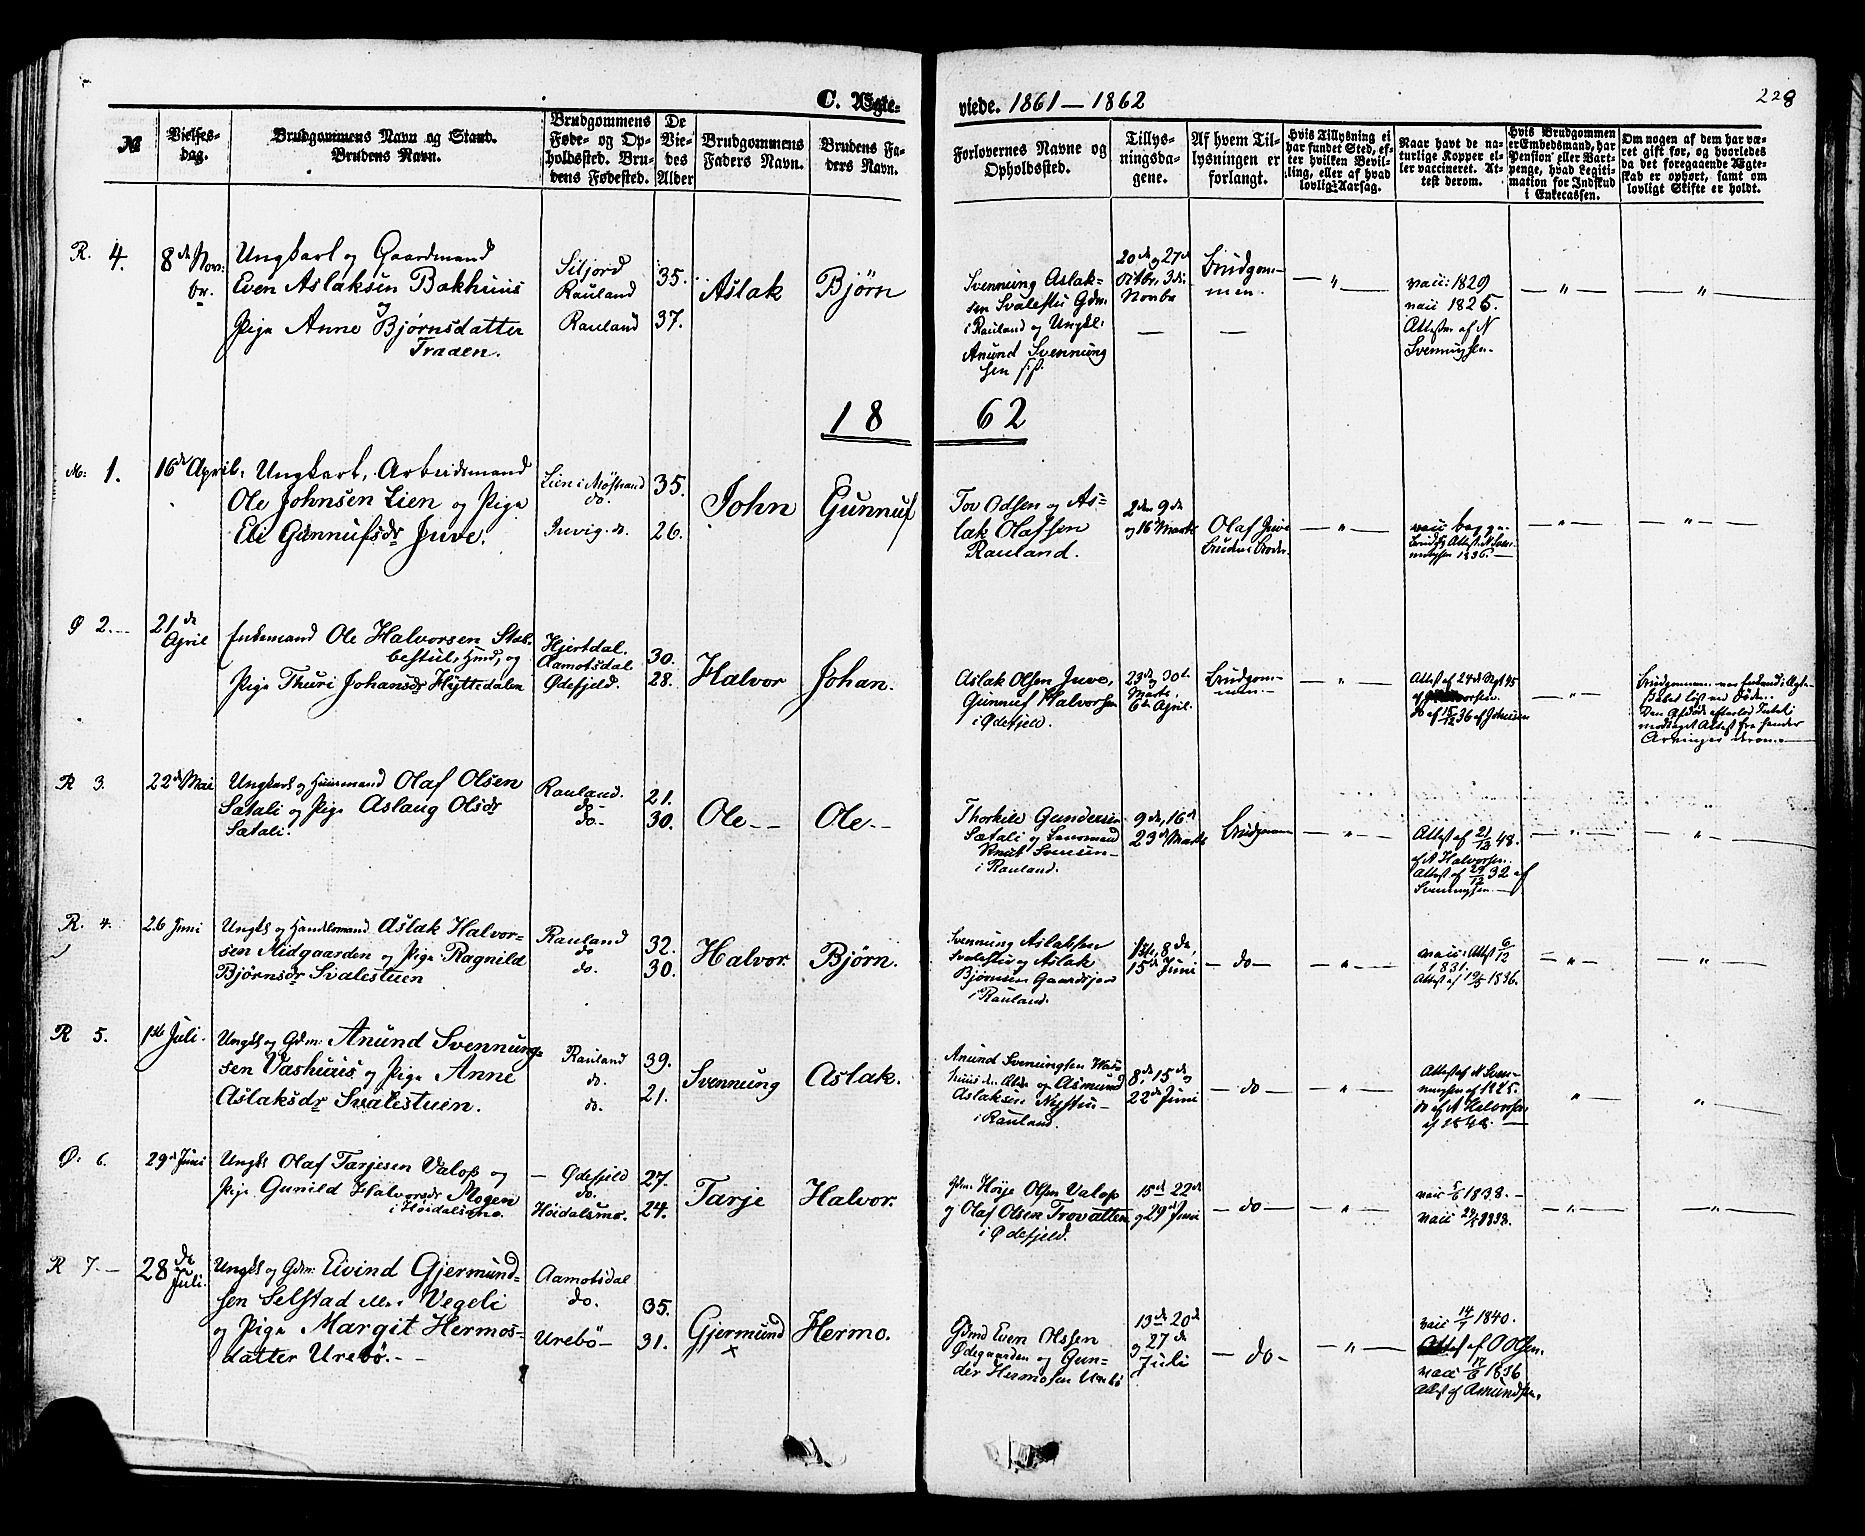 C. Ægte- viede. 1861 — 1862
228
№
Vielses-
dag.
Brudgommens Navn og Stand.
Brudens Navn.
Brudgommens
Føde- og Op-
holdssted. Bru-
dens Fødested.
De
Vie-
des
Alder
Brudgommens
Faders Navn.
Brudens Fa-
ders Navn.
Forlovernes Navne og
Opholdssted.
Tillys-
ningsda-
gene.
Af hvem Til-
lysningen er
forlangt.
Hvis Tillysning ei
har fundet Sted, ef-
ter hvilken Bevil-
ling, eller af hvad
lovlig Aarsag.
Naar havt de na-
turlige Kopper el-
ler vaccineret. At-
test derom.
Hvis Brudgommen
er Embedsmand, har
Pension eller Vart-
penge, hvad Legiti-
mation for Indskud
i Enkecassen.
Om nogen af dem har væ-
ret gift før, og hvorledes
da det foregaaende Ægte-
skab er ophørt, samt om
lovligt Skifte er holdt.
R. 4.
8de Nov:
br.
Ungkarl og Gaardmand
Even Aslaksen Bakhuus
Pige Anne Bjørnsdatter
Traaen.
Siljord
Rauland
Rauland
35.
37.
Aslak
Bjørn
Svennung Aslak-
sen Svalestu Gdm.
i Rauland og Ungkl:
Anund Svennung
sen
20de og 27de
Octbr, 3die
Novbr
Brudgom-
men.
vacc: 1829
vacc 1825.
Attester af N
Svennugsen.
1862
M: 1.
16de April.
Ungkarl, Arbeidsmand
Ole Johnsen Lien og Pige
Eli Gunnufsdr Juve.
Lien i Møstrand
do.
Juvig. do.
35.
26.
John
Gunnuf
Tov Odsen og As-
lak Olafsen
Rauland.
2den 9de
og 16 Marts
Olaf Juve
Brudens Broder.
vacc begge.
1836.
Ø 2.
21de
April
Enkemand Ole Halvorsen Stab-
bestul, Hmd, og
Pige Thuri Johansdr Hyttedalen
Hjertdal.
Aamotsdal
Ødefjeld.
30.
28.
Halvor
Johan.
Aslak Olsen Juve,
Gunnuf Halvorsen
i Ødefjeld.
23de og 30te
Marts,
6te April.
Brudgom-
men.
Attest af 24de Sept 45
af Halvorsen.
do af 36 af Johnsen
Brudgommen var Enkemand
R 3.
22de Mai
Ungkarl og Huusmand Olaf Olsen
Sætali og Pige Aslaug Olsdr
Sætali.
Rauland.
do
do.
21.
30.
Ole
Ole
Thorkild Gundersen
Sætali og Lensmand
Knut Svensen
i Rauland.
9de, 16de
23de Marts
Brudgommen
Attest af 21/12 48.
af N Halvorsen.
Attest af 24/12 32 af
Svennugsen
R. 4.
26 Juni
Ungkl og Handelsmand Aslak Halvor-
sen Midgaarden og Pige Ragnild
Bjørnsdr Svalestuen
Rauland
do
do.
32.
30.
Halvor.
Bjørn.
Svennung Aslaksen
Svalestu og Aslak
Bjørnsen Gaardsjord
i Rauland.
1ste, 8de,
15de Juni
do
vacc: Attest 6/12
1831.
Attest af 19/5 1836.
R 5.
1ste Juli.
Ungkl og Gdm: Anund Svennung-
sen Vashuus og Pige Anne
Aslaksdr Svalestuen.
Rauland
do.
do.
39.
21.
Svennung
Aslak.
Anund Svennungsen Vas-
huus den Ældre og Asmund
Aslaksen Nystu
i Rauland.
8de, 15de og
22de Juni
do
Attest af N Sven-
nungsen af 1825.
do af N Halvorsen
af 1848.
Ø: 6.
29de Juni
Ungkl Olaf Tarjesen Valop og
Pige Gunild Halvorsdr Mogen
i Høidalsmo.
Ødefjeld
do.
Høidalsmo.
27.
24.
Tarje
Halvor.
Gdm. Høije Olsen Valop
og Olaf Olsen Trovatten
i Ødefjeld.
15de 22de
og 29de Juni
do
vacc 1838.
vacc 1838.
R 7.
28de
Juli.
Ungkl og Gdm. Eivind Gjermund-
sen Selstad Vegeli
og Pige Margit Hermos-
datter Urebø.
Aamotsdal
do.
Urebø
35.
31.
Gjermund
Hermo.
Gdmd Even Olssen
Ødegaarden og Gun-
der Hermosen Urebø
13de 20de
og 27de
Juli
do
vacc 14/7 1840.
Attest af O Olsen.
vacc 1836
Attest af Asmundsen.